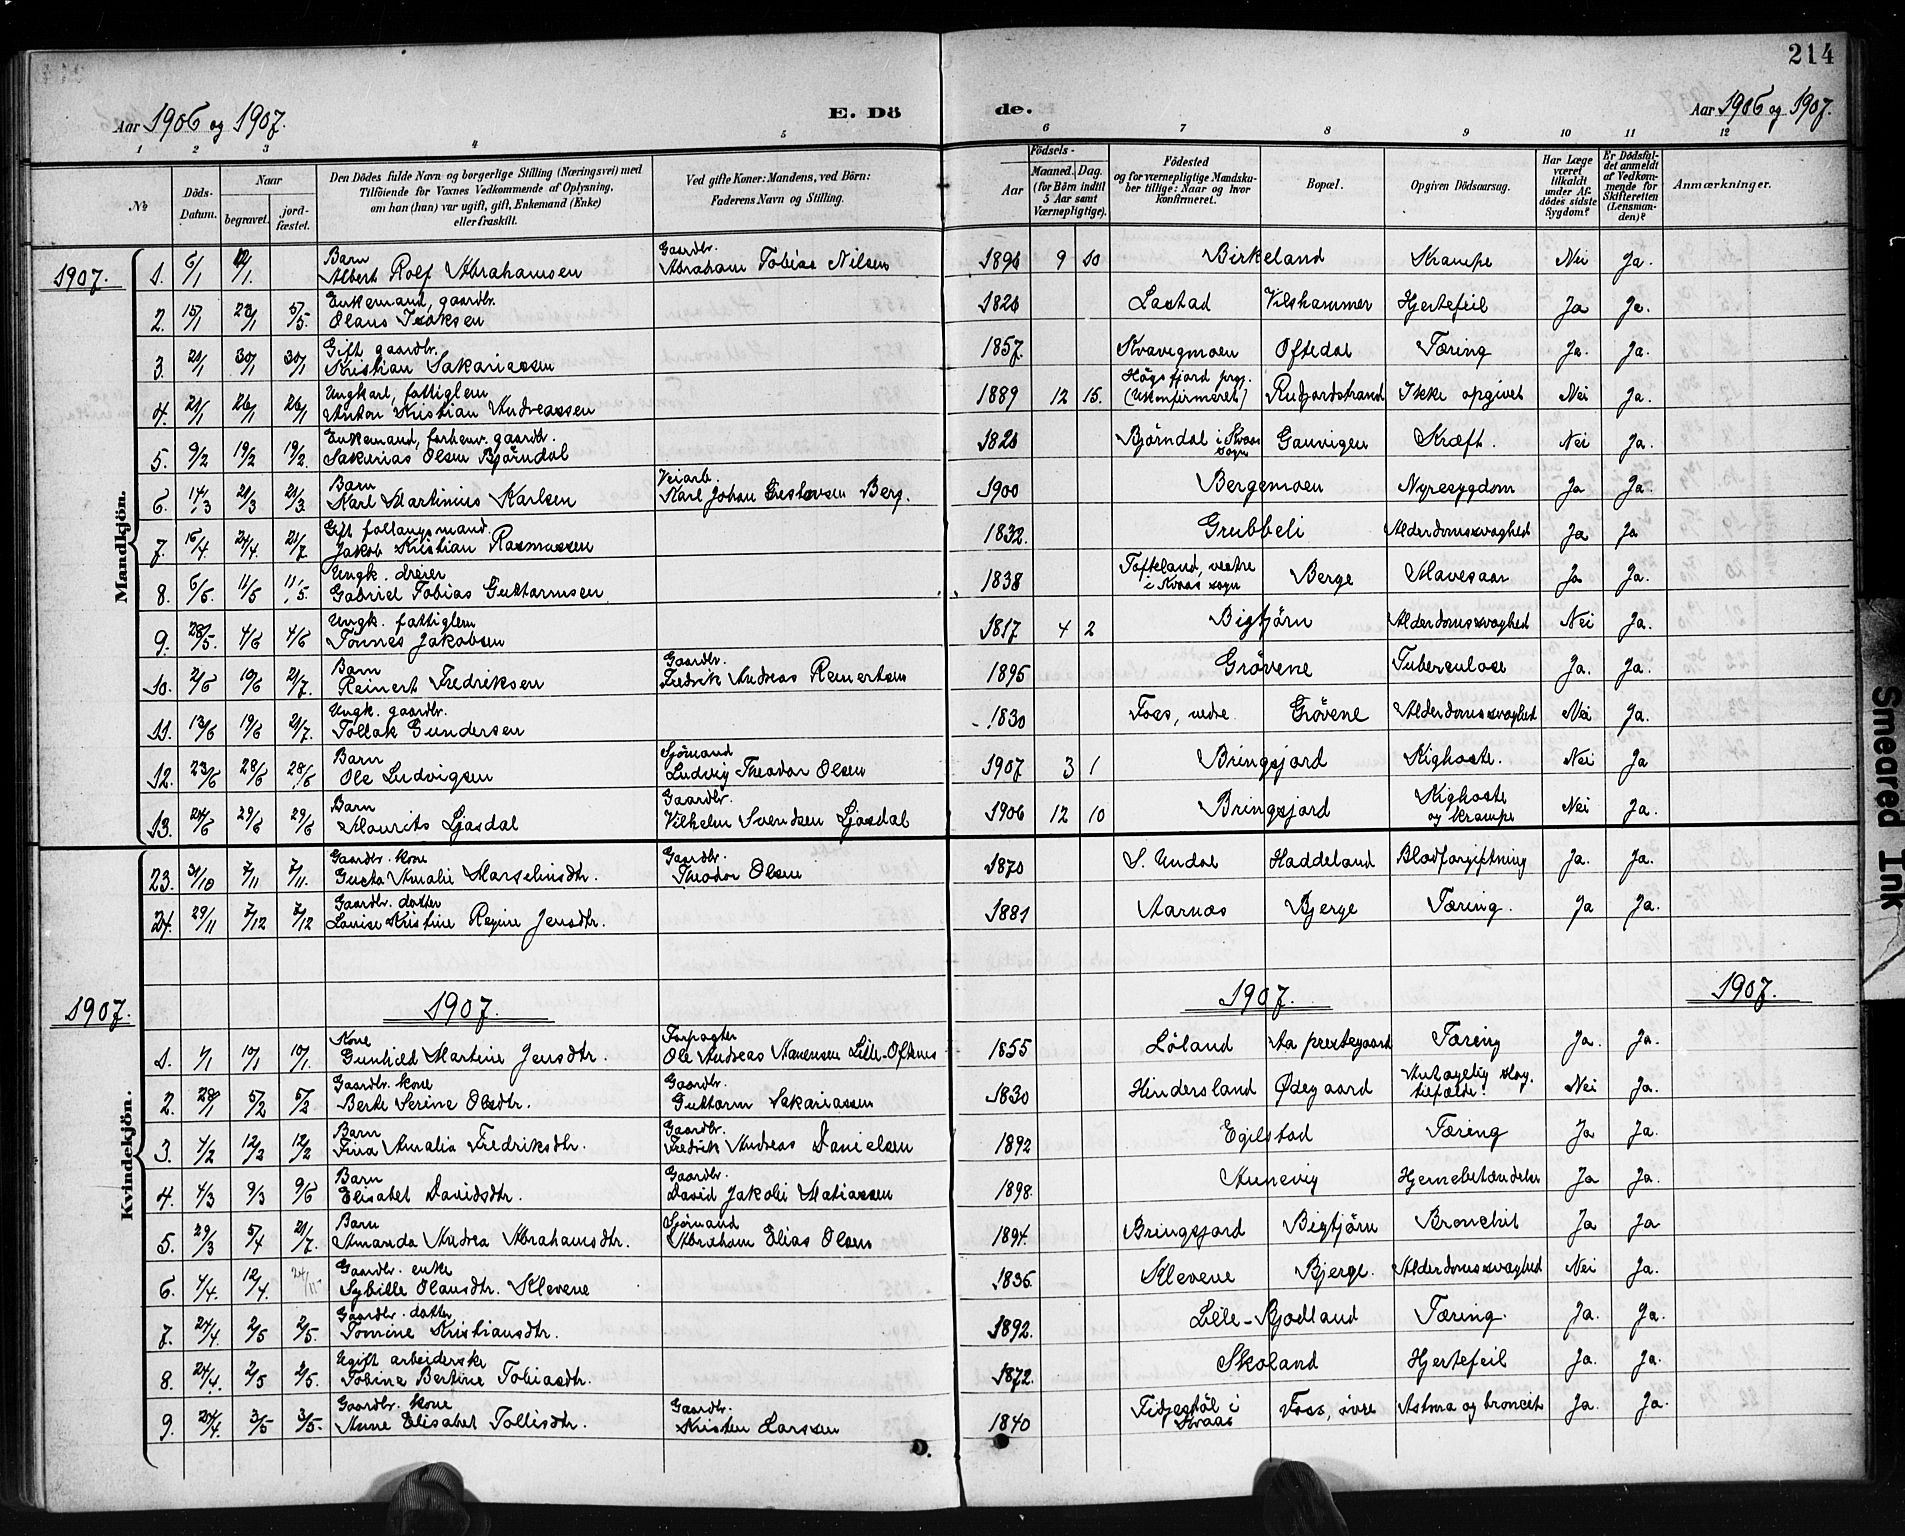 214
Aar 1906 og 1907.
E. Dö de.
Aar 1906 og 1907.
1 2 3 4 5 6 7 8 9 10 11 12
№
Döds-Datum.
Naar
begravet.
jord-fæstet.
Den Dödes fulde Navn og borgerlige Stilling (Næringsvei) med
Tilföiende for Voxnes Vedkommende af Oplysning,
om han (hun) var ugift, gift, Enkemand (Enke)
eller fraskilt.
Ved gifte Koner: Mandens, ved Börn:
Faderens Navn og Stilling.
Födsels-
Aar
Maaned. Dag.
(for Börn indtil
5 Aar samt
Værnepligtige).
Födested
og for værnepligtige Mandska-
ber tillige: Naar og hvor
konfirmeret.
Bopæl.
Opgiven Dödsaarsag.
Har Læge
været
tilkaldt
under Af-
dödes sidste
Sygdom?
Er Dödsfal-
det anmeldt
af Vedkom-
mende for
Skifteretten
(Lensman-
den)?
Anmærkninger.
1907.
Mandkjön.
1. 6/1 12/1. Barn Albert Rolf Abrahamsen Gaardbr. Abraham Tobias Nilsen 1896 9 10 Birkeland Krampe Nei Ja.
2. 15/1 23/1 5/5. Enkemand, gaardbr. Olaus Isaksen 1826 Lastad Vilshammer Hjertefeil Ja Ja.
3. 20/1 30/1 30/1 Gift gaardbr. Kristian Sakariassen 1857. Kvavigmoen Oftedal Tæring Ja. Ja.
4. 21/1 26/1 26/1 Ungkarl, fattiglem Anton Kristian Andreassen 1889 12 15. Högsfjord prgj. (Ukonfirmeret) Rufjordstrand Ikke opgivet Nei Ja.
5. 9/2 19/2 19/2. Enkemand, forhenv. gaardbr. Sakarias Olsen Björndal 1826 Björndal i Kvaas sogn Gauvigen Kræft. Nei Ja.
6. 14/3 21/3 21/3. Barn Karl Martinius Karlsen Veiarb. Karl Johan Gustavsen Berg. 1900 Bergemoen Nyresygdom Ja Ja.
7. 16/4 24/4. 21/7 Gift follaugsmand. Jakob Kristian Rasmussen 1832. Grubbeli Alderdomssvaghed Ja Ja
8. 6/5 11/5 11/5. Ungk. dreier Gabriel Tobias Guttormsen 1838 Tofteland, vestre i Kvaas sogn Berge Mavesaar Ja Ja.
9. 28/5. 4/6 4/6 Ungk. fattiglem Tönnes Jakobsen 1817 4 2 Bigtjörn Alderdomssvaghed Nei Ja.
10. 2/6 19/6 21/7. Barn Reinert Fredriksen Gaardbr. Fredrik Andreas Reinertsen 1895 Grövene Tuberculose Ja. Ja.
11. 13/6 19/6 21/7. Ungk. gaardbr. Tollak Gundersen 1830 Foss, nedre. Grövene Alderdomssvaghed Nei Ja.
12. 23/6 28/6 28/6 Barn Ole Ludvigsen Sjömand Ludvig Theodor Olsen 1907 3 1 Bringsjord Kighoste. Nei Ja
13. 24/6 29/6 29/6 Barn Maurits Ljosdal Gaardbr. Vilhelm Svendsen Ljosdal 1906 12 10 Bringsjord Kighoste og krampe Nei Ja.
Kvindekjön.
23. 31/10 7/11 7/11. Gaardbr. kone Gusta Amalie Marseliusdtr. Gaardbr. Theodor Olsen 1870 S. Undal Haddeland Blodforgiftning Ja. Ja.
24. 29/11 7/12 7/12 Gaardbr. datter Louise Kristine Regine Jensdtr. 1881 Aarnes Bjerge Tæring. Ja Ja.
1907. 1907. 1907. 1907.
1. 1/1 10/1 10/1. Kone Gunhild Martine Jensdtr. Forpagter Ole Andreas Lille-Oftnes 1855 Löland Aa prestegaard Tæring Ja. Ja.
2. 28/1 5/2 5/2 Gaardbr. kone Berte Serine Olsdtr. Gaardbr. Guttorm Sakariassen 1830 Hindersland Ødegaard Antagelig slag-tilfælde. Nei Ja.
3. 4/2 12/2 12/2 Barn Tina Amalia Fredriksdtr. Gaardbr. Fredrik Andreas Danielsen 1892 Egilstad Tæring Ja Ja.
4. 4/3 9/3 9/6 Barn Elisabet Davidsdtr. Gaardbr. David Jakobi Matiassen 1898. Aunevig Hjernebetændelse Ja Ja.
5. 29/3 5/4 21/7. Barn Amanda Andrea Abrahamsdtr. Sjömand Abraham Elias Olsen 1894. Bringsjord Bigtjörn Bronchit Ja Ja
6. 4/4. 12/4. 24/11 Gaardbr. enke Sybille Olausdtr. Klevene 1836. Klevene Bjerge. Alderdomssvaghed Nei Ja.
7. 24/4. 2/5 2/5. Gaardbr. datter Tomine Kristiansdtr. 1892. Lille-Kjodland Tæring. Ja. Ja.
8. 24/4. 2/5 2/5. Ugift arbeiderske Tobine Bertine Tobiasdtr. 1872. Skoland Hjertefeil Ja. Ja.
9. 24/4. 3/5 3/5. Gaardbr. kone Anne Elisabet Tollisdtr. Gaardbr. Kristen Larssen 1840 Fidjestöl i Kvaas Foss, övre Astma og broncit Ja. Ja.
D.
Smeared Ink